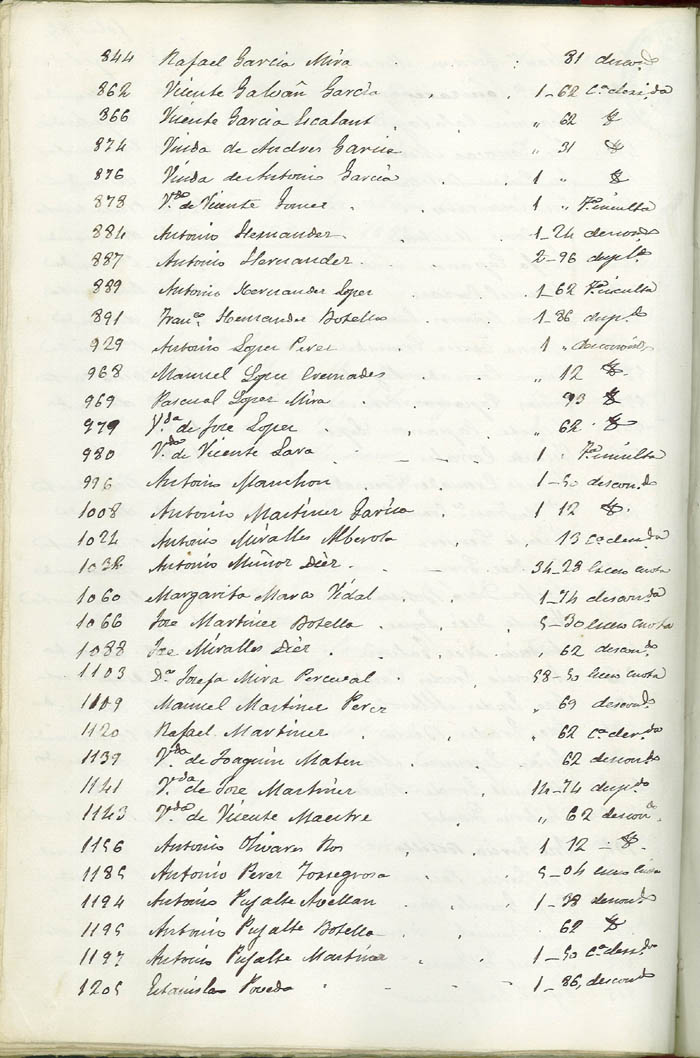 844 Rafael Garcia Mira . : 81 descon.do
862 Vicente Galvañ Garcia . . 1-62 Ca derri.da
866 Vicente Garcia Escalant . . „ 62
874 Viuda de Andres Garcia „ 31
876 Viuda de Antonio Garcia . 1 „
878 V.da de Vicente Gomez . . 1 „ Va inculta
884 Antonio Hernandez . . 1-24 descon.do
887 Antonio Hernandez . . 2-96 dupl.do
889 Antonio Hernandez Lopez . . 1-62 Va inculta
891 Fran.co Hernandez Botella . . 1-86 dup.do
929 Antonio Lopez Perez . . 1 „
968 Manuel Lopez Cremades . . „ 12
969 Pascual Lopez Mira . . 93
979 V.da de Jose Lopez . . „ 62
980 V.da de Vicente Lara . 1 Va inculta
996 Antonio Manchon . . 1-50 descon.do
1008 Antonio Martinez Garcia . . 1 12
1024 Antonio Miralles Alberola . . 13 Ca derri.da
1038 Antonio Muñoz Diez . . 34-28 cuota
1060 Margarita Marco Vidal . . 1-74 descon.da
1066 Jose Martinez Botella . . 5-30 cuota
1088 Jose Miralles Diez . . „ 62 descon.do
1103 D.a Josefa Mira Perceval . 58-50 cuota
1109 Manuel Martinez Perez . „ 69 descon.do
1120 Rafael Martinez . „ 62 Ca der.da
1139 V.da de Joaquin Mateu . . 62 descon.do
1141 V.da de Jose Martinez . . 14-74 dup.do
1143 V.da de Vicente Maestre . „ 62 descon.a
1156 Antonio Olivares Ros . . 1 12
1185 Antonio Perez Torregrosa . . 5-04 cuota
1194 Antonio Pujalte Avellan . . 1-38 descon.do
1195 Antonio Pujalte Botella . . 62
1197 Antonio Pujalte Martinez . . 1-50 Ca derr.da
1205 Estanislao Poveda . . 1-86, descon.do